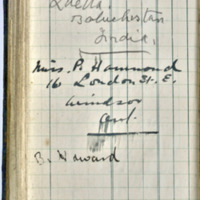 Quetta.
Baluchistan
India.
Miss. P. Hammond
16 London St. E.
Windsor
Ont.
B. Howard